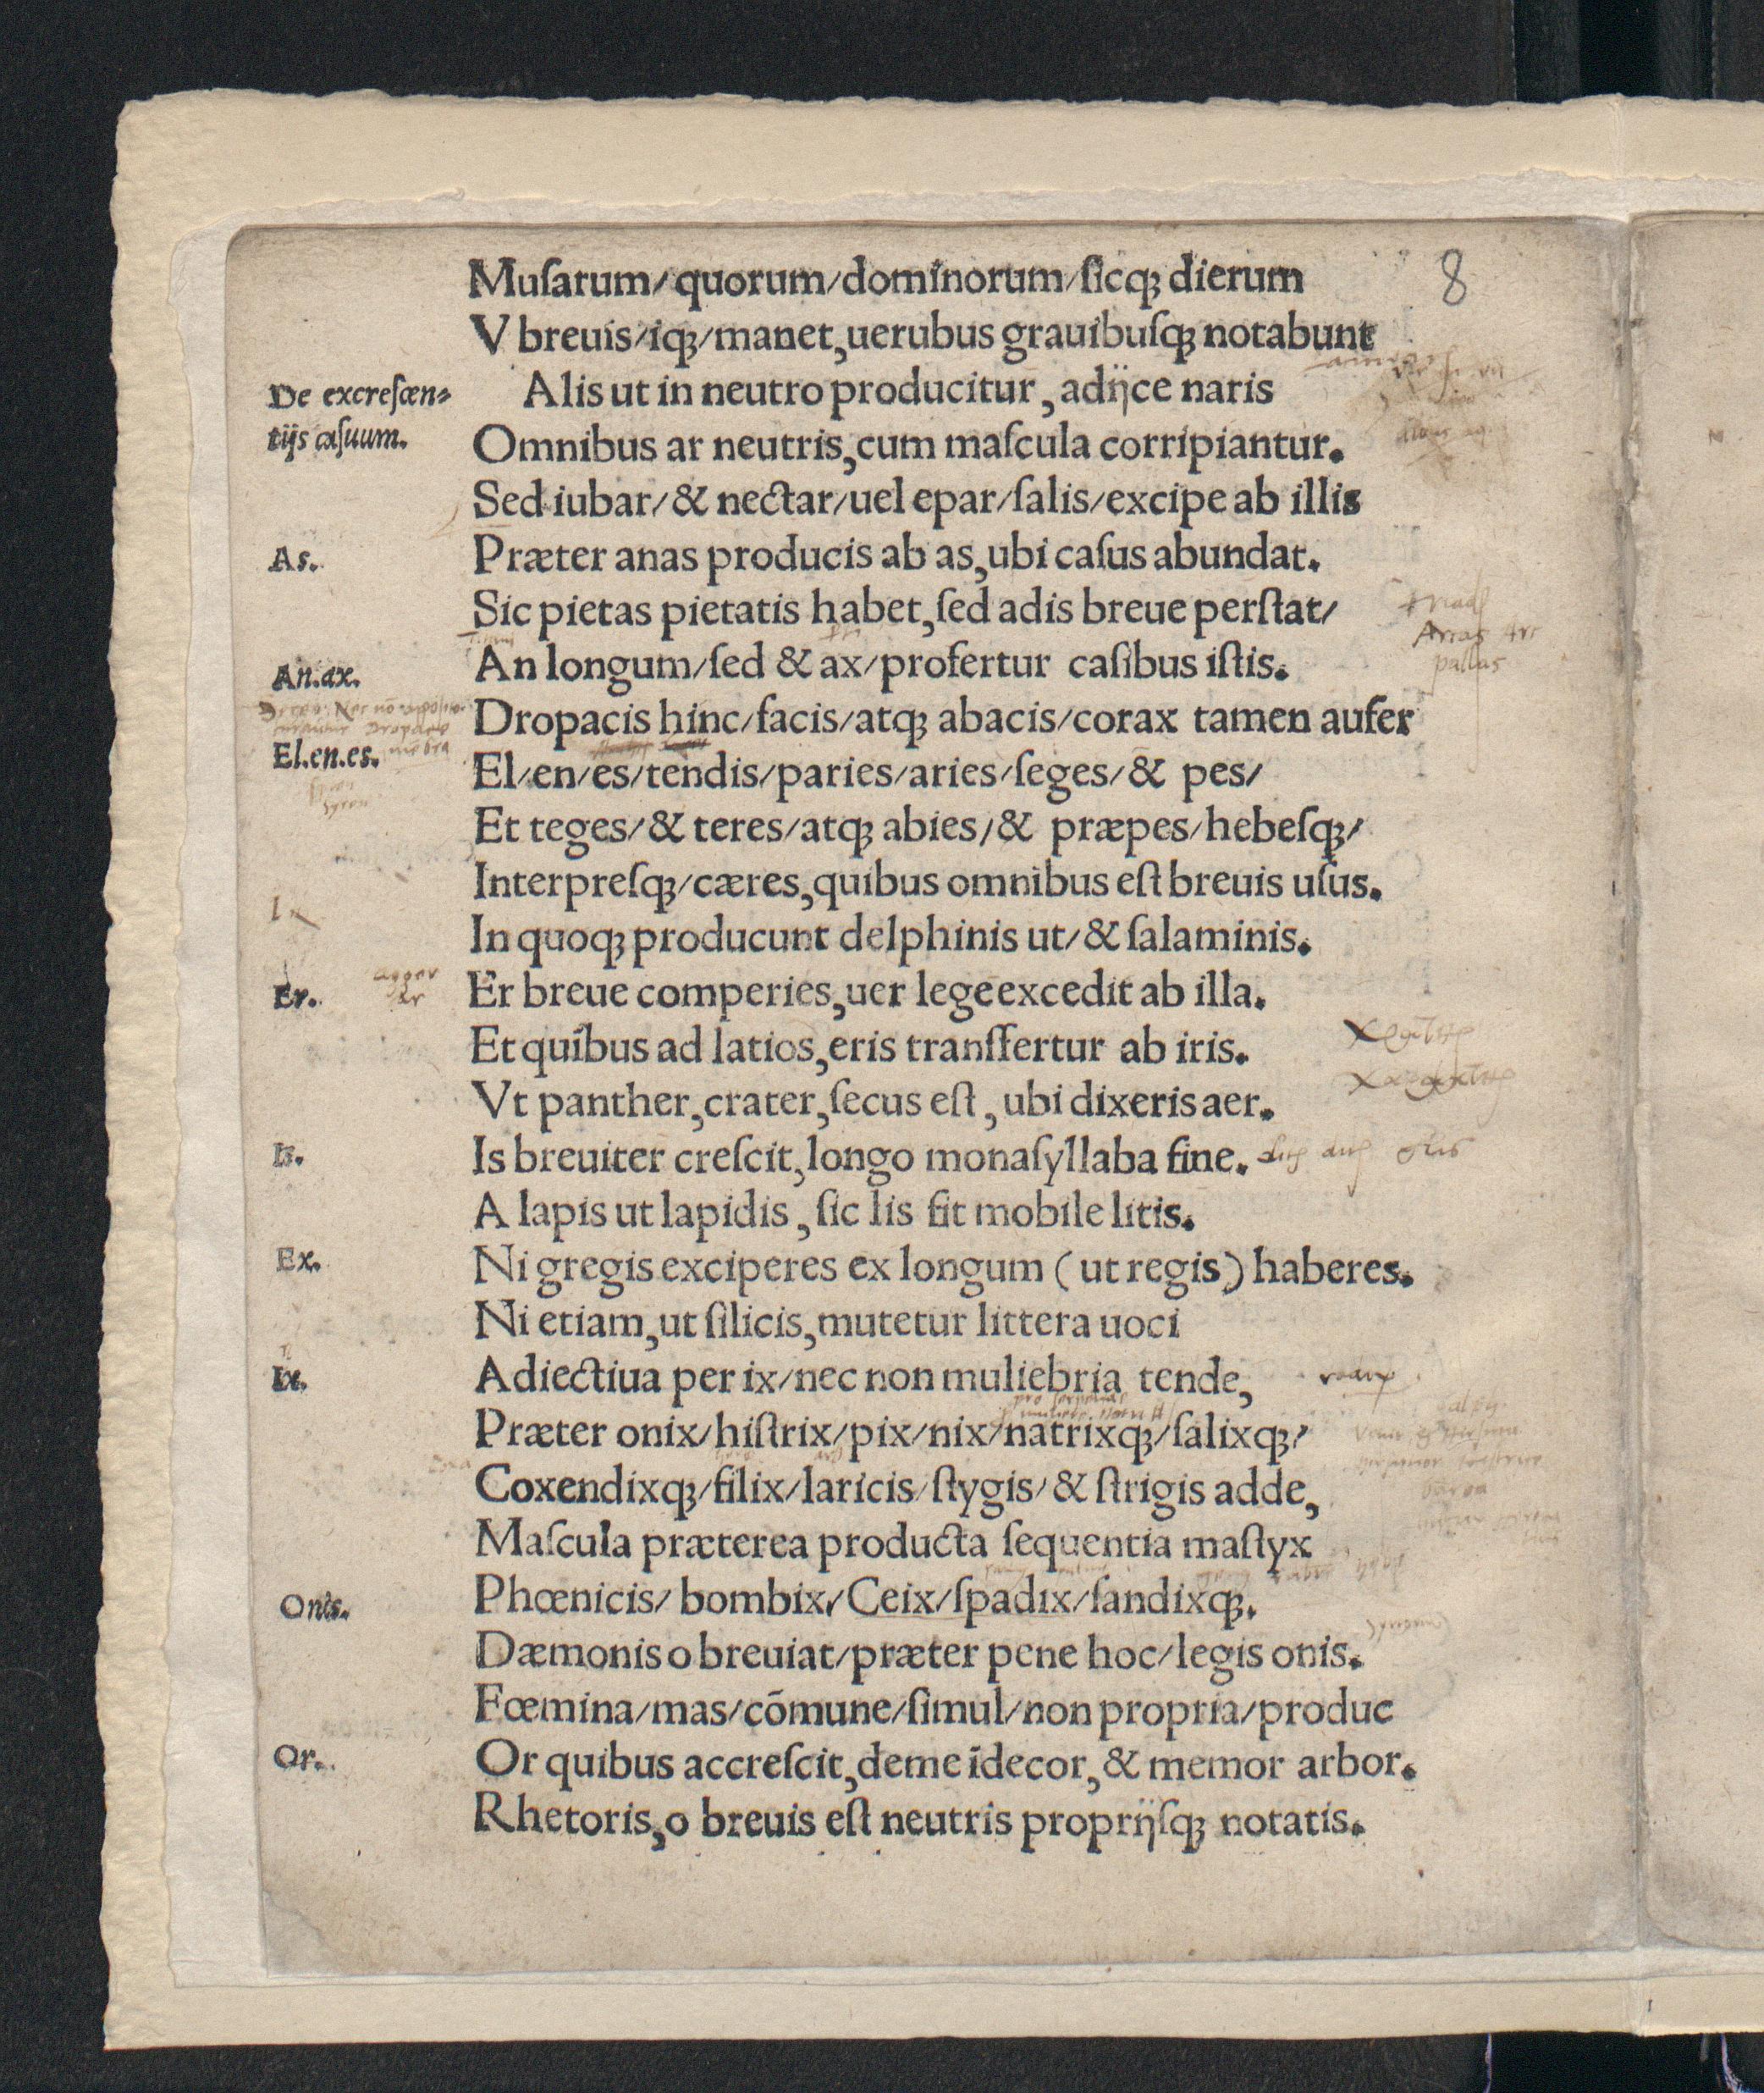 8
Muſarum/quorum/dominorum/ſicqꝫ dierum
V breuis/iqꝫ/manet,uerubus grauibuſqꝫ notabunt
De excreſcen⸗
tijs caſuum.
Alis ut in neutro producitur, adijce naris
Omnibus ar neutris,cum maſcula corripiantur.
Sed iubar/& nectar/uel epar/ſalis/excipe ab illis
As.
Præter anas producis ab as,ubi caſus abundat.
Sic pietas pietatis habet,ſed adis breue perſtat/
pallas
An.ax.
An longum/ſed & ax/profertur caſibus iſtis.
Dropacis hinc/facis/atqꝫ abacis/corax tamen aufer
El.en.es.
El/en/es/tendis/paries/aries/ſeges/& pes/
Et teges/& teres/atqꝫ abies/& præpes/hebeſqꝫ/
Interpreſqꝫ/cæres,quibus omnibus eſt breuis uſus.
In quoqꝫ producunt delphinis ut/& ſalaminis.
Er.
Er breue comperies,uer lege excedit ab illa.
Et quibus ad latios,eris tranſfertur ab iris.
Vt panther,crater,ſecus eſt, ubi dixeris aer.
Is.
Is breuiter creſcit,longo monaſyllaba fine.
A lapis ut lapidis, ſic lis fit mobile litis.
Ex.
Ni gregis exciperes ex longum (ut regis) haberes.
Ni etiam,ut ſilicis,mutetur littera uoci
Ix.
Adiectiua per ix/nec non muliebria tende,
Præter onix/hiſtrix/pix/nix/natrixqꝫ/ſalixqꝫ/
Coxendixqꝫ/filix/laricis/ſtygis/& ſtrigis adde,
Maſcula præterea producta ſequentia maſtyx
Phœnicis/ bombix/Ceix/ſpadix/ſandixqꝫ.
Onis.
Dæmonis o breuiat/præter pene hoc/legis onis.
Fœmina/mas/cõmune/ſimul/non propria/produc
Or.
Or quibus accreſcit,deme īdecor,& memor arbor.
Rhetoris,o breuis eſt neutris proprijſqꝫ notatis.